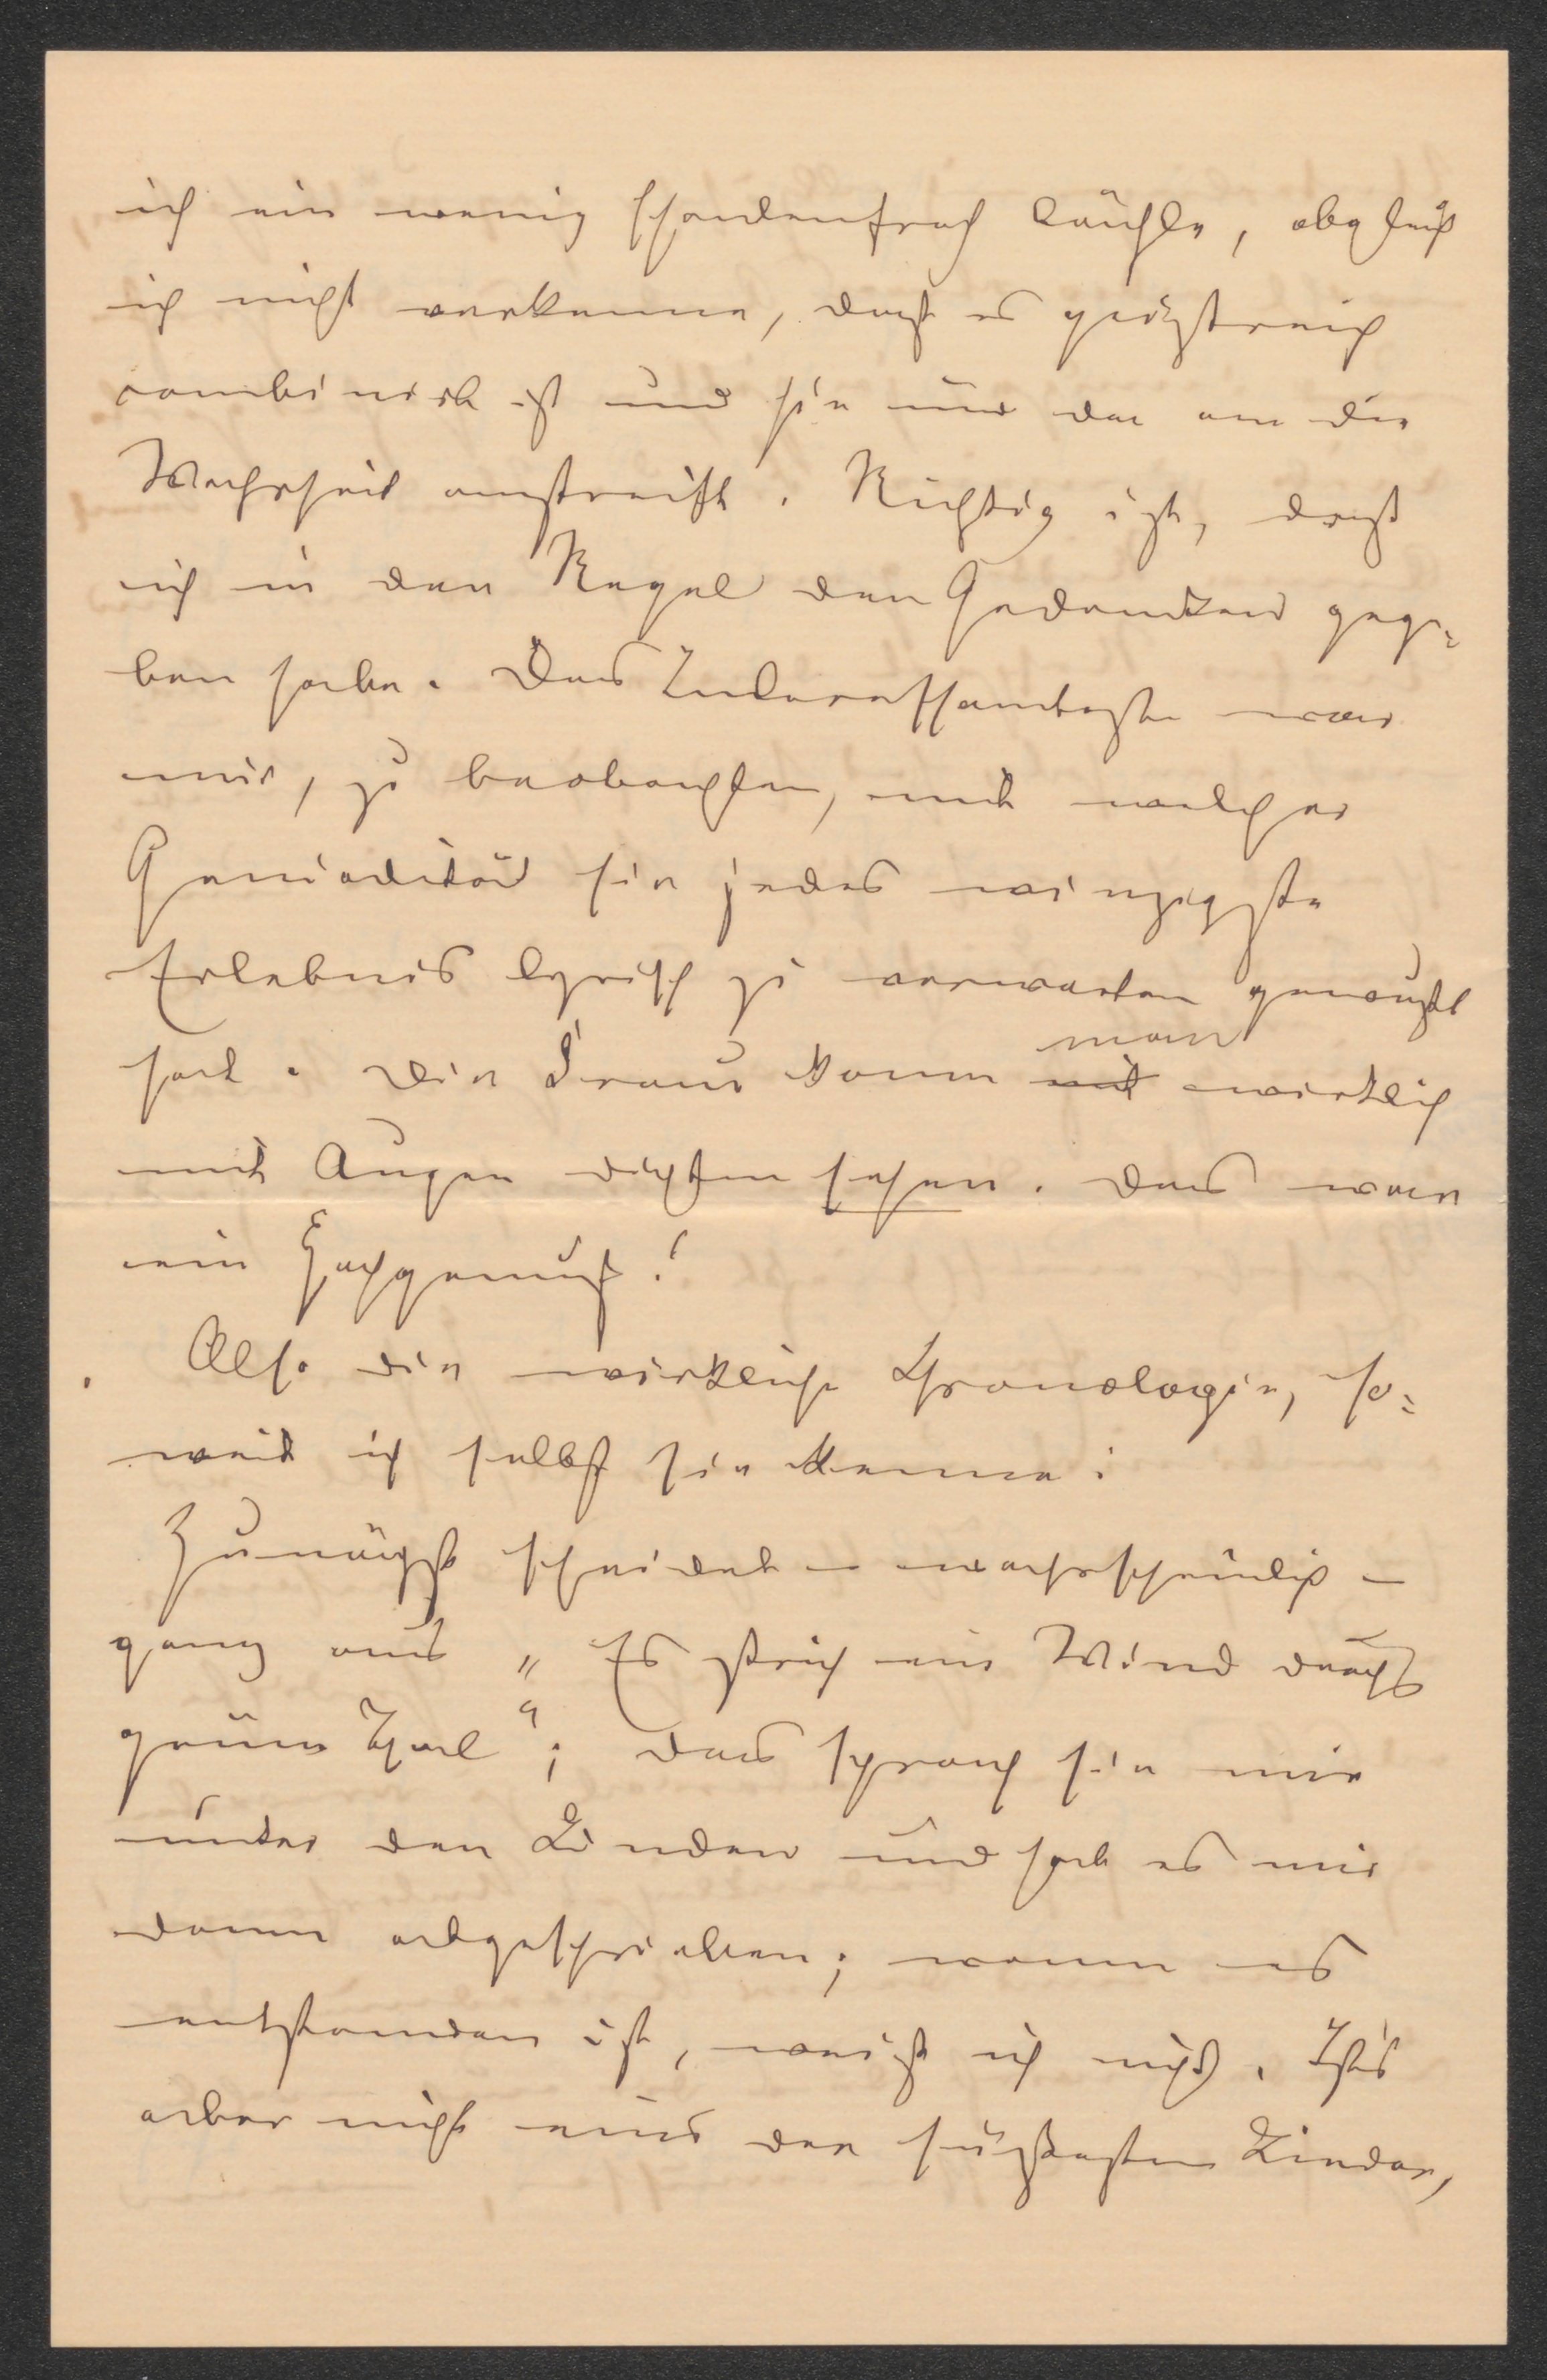 ich ein wenig schadenfroh lächle, obgleich
ich nicht verkenne, dass es geistreich
combinirt ist und hie und da an die
Wahrheit anstreift. Richtig ist, dass
ich in der Regel den Gedanken gege-
ben habe. Das Interessanteste war
mir, zu beobachten, mit welcher
Genialität sie jedes winzigste
Erlebnis lyrisch zu verwerten gewußt
hat. Die Frau kann man wirklich
mit Augen dichten sehen. Das war
ein Hochgenuß!
Also die wirkliche Chronologie, so-
weit ich selbst sie kenne:
Zunächst scheidet – wahrscheinlich –
ganz aus „Es strich ein Wind durchs
grüne Thal“; das sprach sie mir
unter den Linden und hat es mir
dann abgeschrieben; wann es
entstanden ist, weiß ich nicht. Ist's
aber nicht eins der süßesten Lieder,